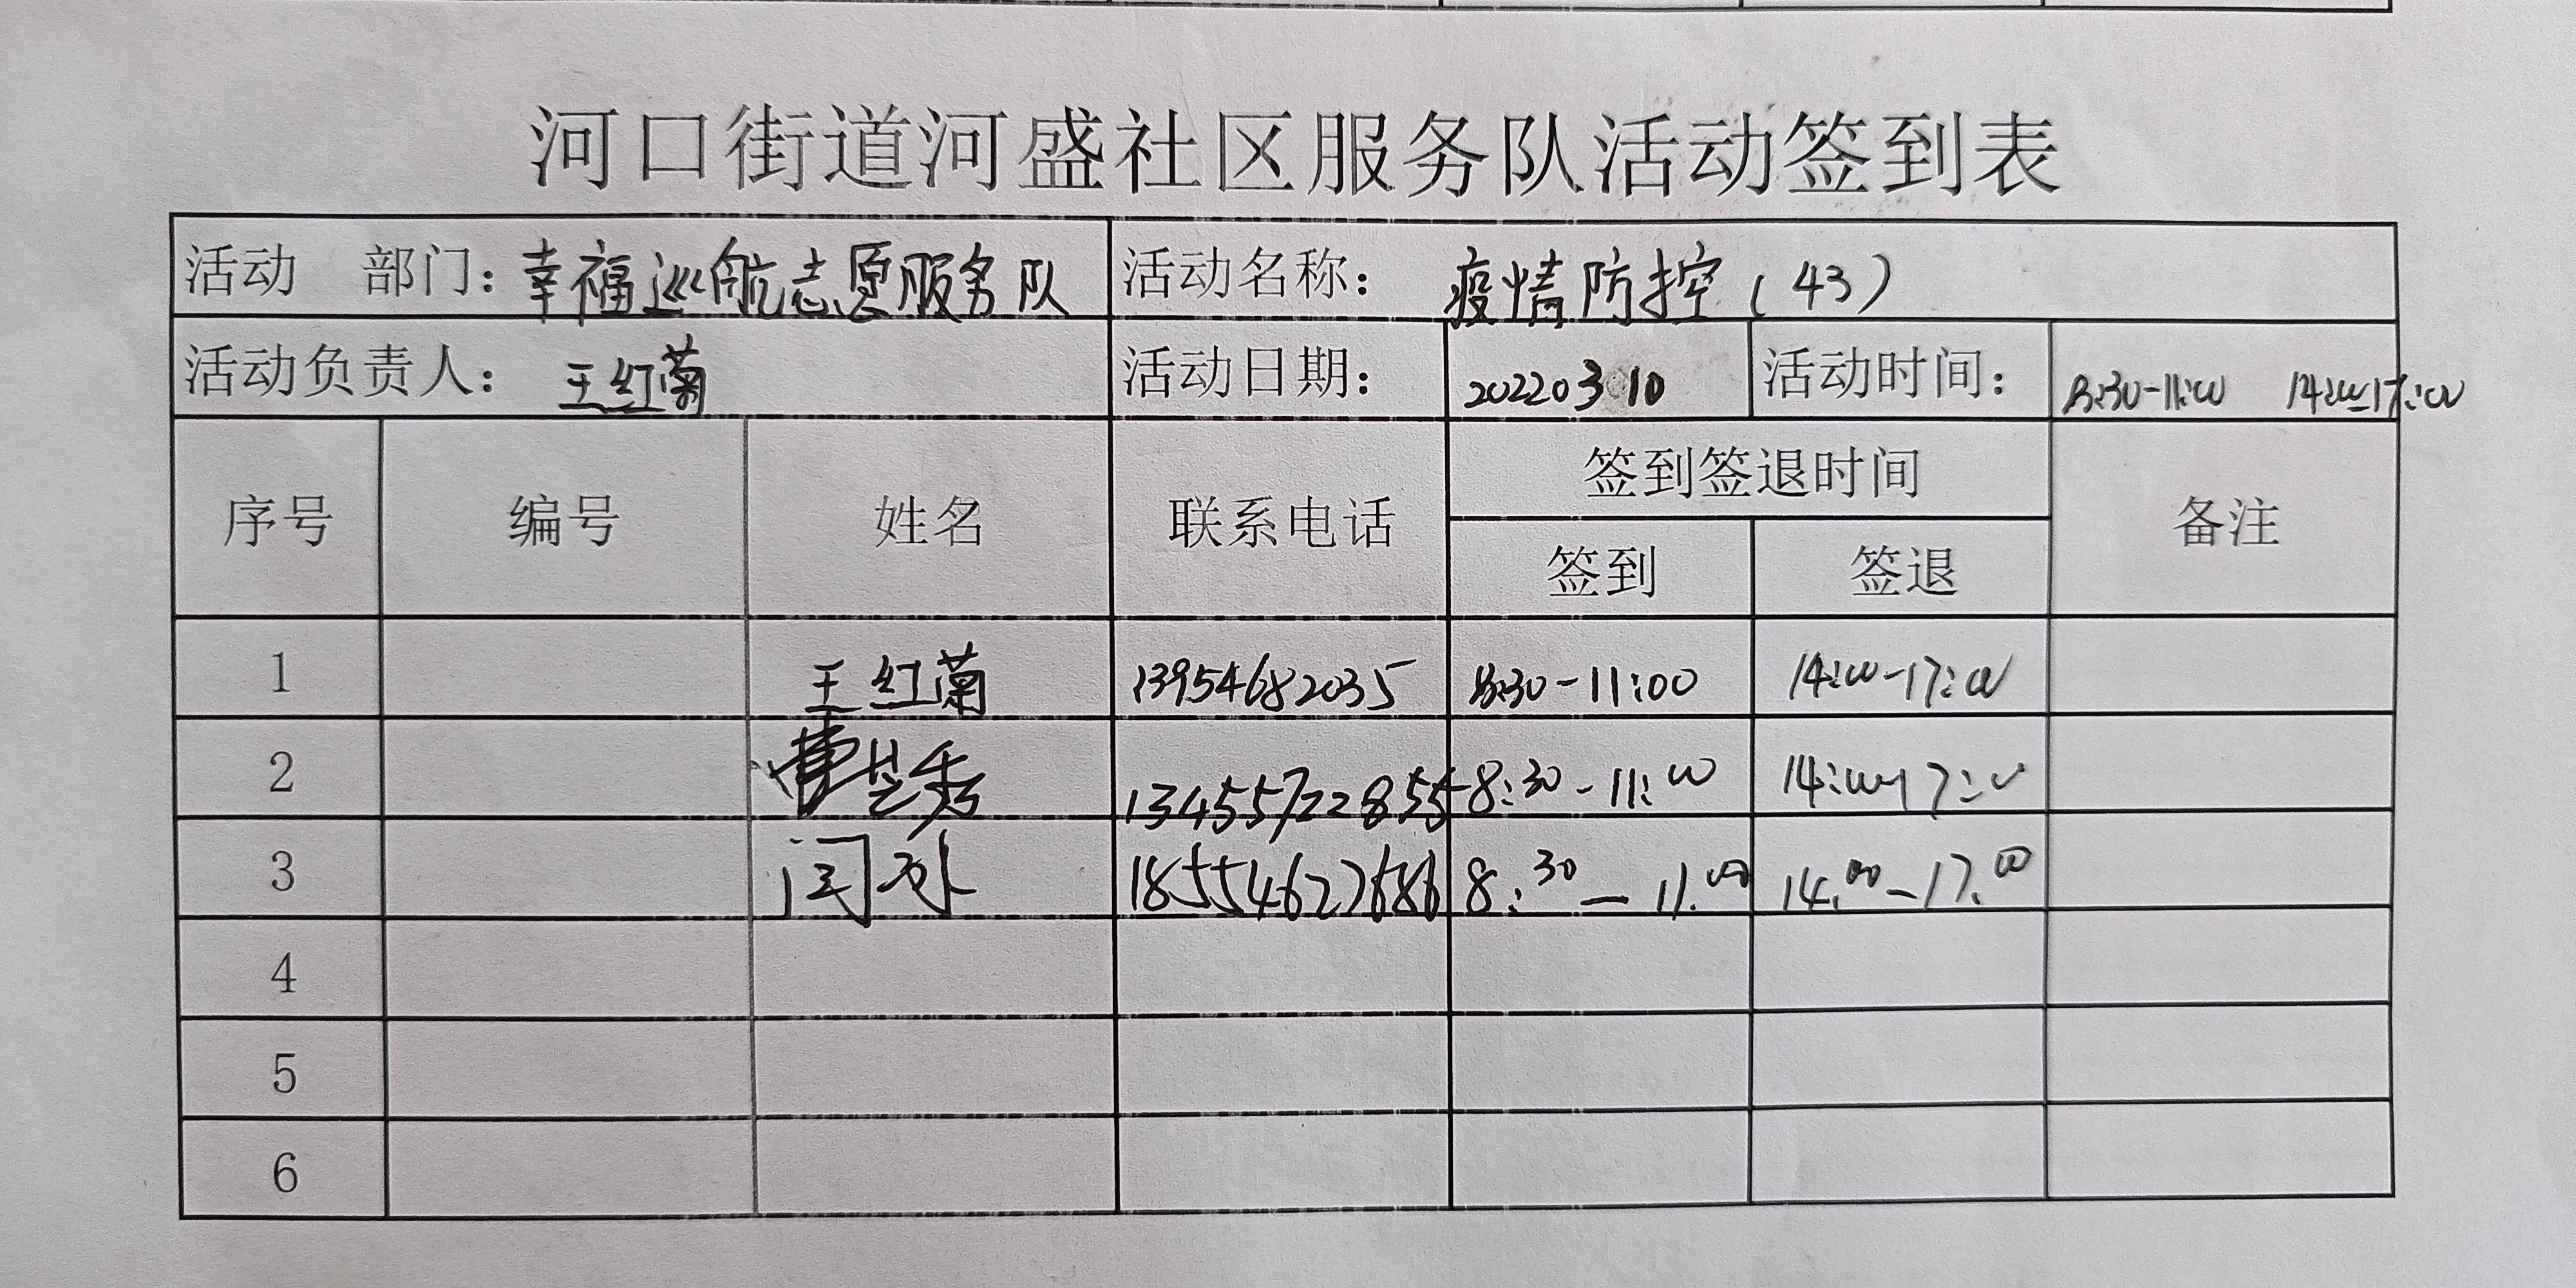 河口街道河盛社区服务队活动签到表
活动 部门：幸福巡航志愿服务队 活动名称： 疫情防控（43）
活动负责人： 王红菊 活动日期： 20220310 活动时间： 8:30-11:00 14:00-17:00
序号 编号 姓名 联系电话 签到签退时间 备注
签到 签退
1 王红菊 13954682035 8:30-11:00 14:00-17:00
2 曹芝秀 13455722855 8:30-11:00 14:00-17:00
3 闫 18554627686 8:30—11:00 14:00-17:00
4
5
6